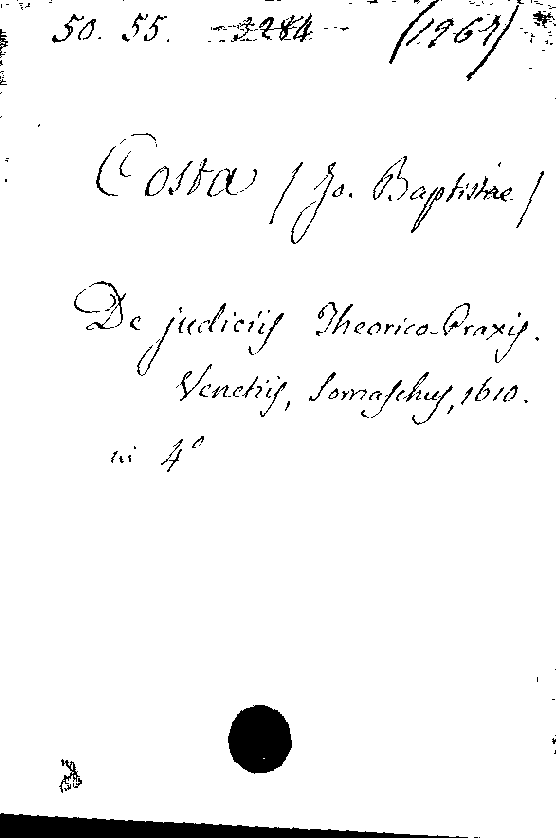 50. 55. 3284 (1267)
Costa / Jo. Baptistae /
De judiciis Theorico-Praxis.
Venetiis, Somaschus, 1610.
in 4°